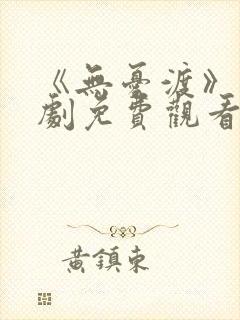 《無憂渡》
劇免費觀看
黃鎮東